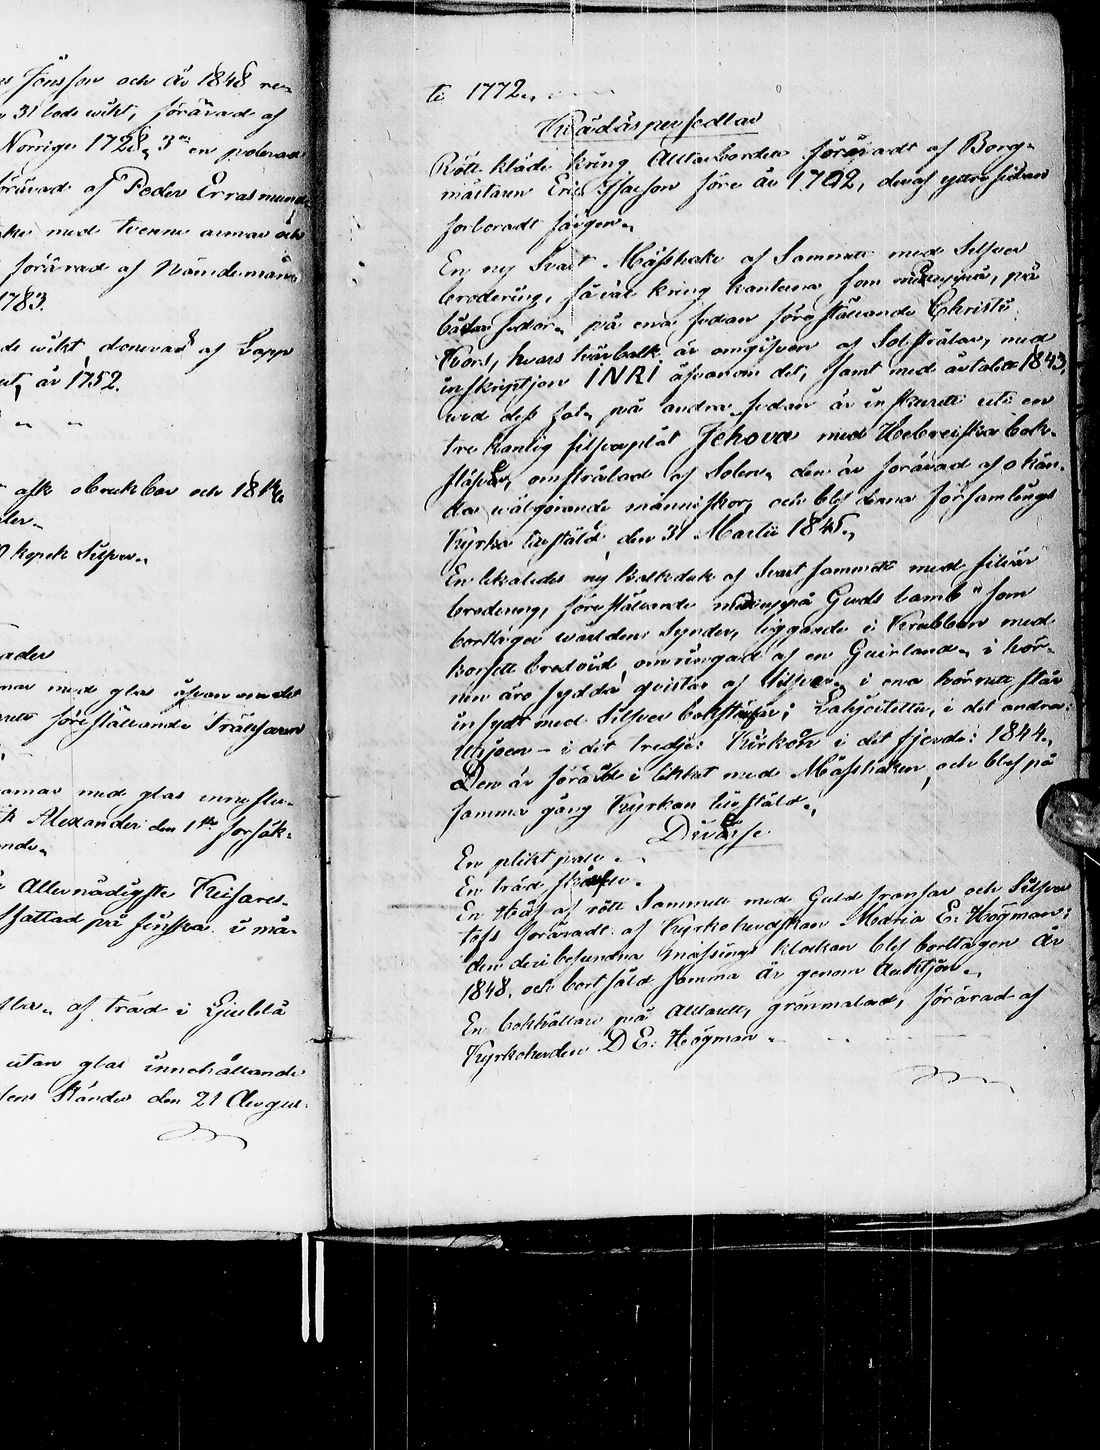 s Jönsson och År 1848 re-
31 lods wikt, förärad af
Norrige 1728, 3:ne en polerad
förärad af Peder Errasmund
med tvenne armar och
förärad af Nämndeman
1783.
wikt, donerad af Lapp
år 1752.
obrukbar och 18
kopek Silfver.
med glas åfvanom det
föreställande Frälsaren
ramar med glas inneslu-
Alexander den 1:ste försäk-
ande.
Allernådigste Keisares
fattad på finska i må-
af träd i Ljusblå
utan glas innehållande
dens Ständer den 21 Augus-
ti 1772.
Klädespersedlar
Rött kläde kring Altarborden föräradt af Borg-
mästaren Eric Isacson före år 1702, deraf yttre sidan
förloradt färgen.
En ny Svart Mässhake af Sammet med Silfver
brodering, såväl kring kanterna som midtuppå, på
båda sidor, på ena sidan föreställande Christi
Kors, hvars tvärbalk är omgifven af Solstrålar, med
inskriptjon INRI åfvanom det, samt med årtalet 1843,
wid dess fot, på andra sidan är inskurit uti en
trekantig silfverplåt Jehova med Hebreiska bok-
stäfver, omstrålad af Solen. den är förärad af okän-
da wälgörande människor, och blef denna församlings
Kyrka tillstäld den 31 Martii 1845.
En likaledes ny kalkduk af Svart sammet med silfver
brodering, föreställande midtuppå Guds Lamb" som
borttager werldens Synder, liggande i Krubban med
korset bredvid omringad af en Guirland. i hör-
nen äro sydda qvistar af Silfver. i ena hörnet står
insydt med Silfver bokstäfver: Lahjoitettu, i det andra:
Uhjoen – i det tredje: Kirkon i det fjerde: 1844.
Den är förärad i likhet med Mässhaken, och blef på
samma gång Kyrkan tillstäld.
Diverse
En plikt pall.
En träd
En Håf af rött Sammet med Guld fransar och Silfver
tofs föräradt af Kyrkoherdskan Maria E: Högman:
den deri befindna mässings klockan blef borttagen År
1848, och bortsåld samma år genom Auktjon.
En bokhållare på Altaret, grönmålad, förärad af
Kyrkoherden D E: Högman.